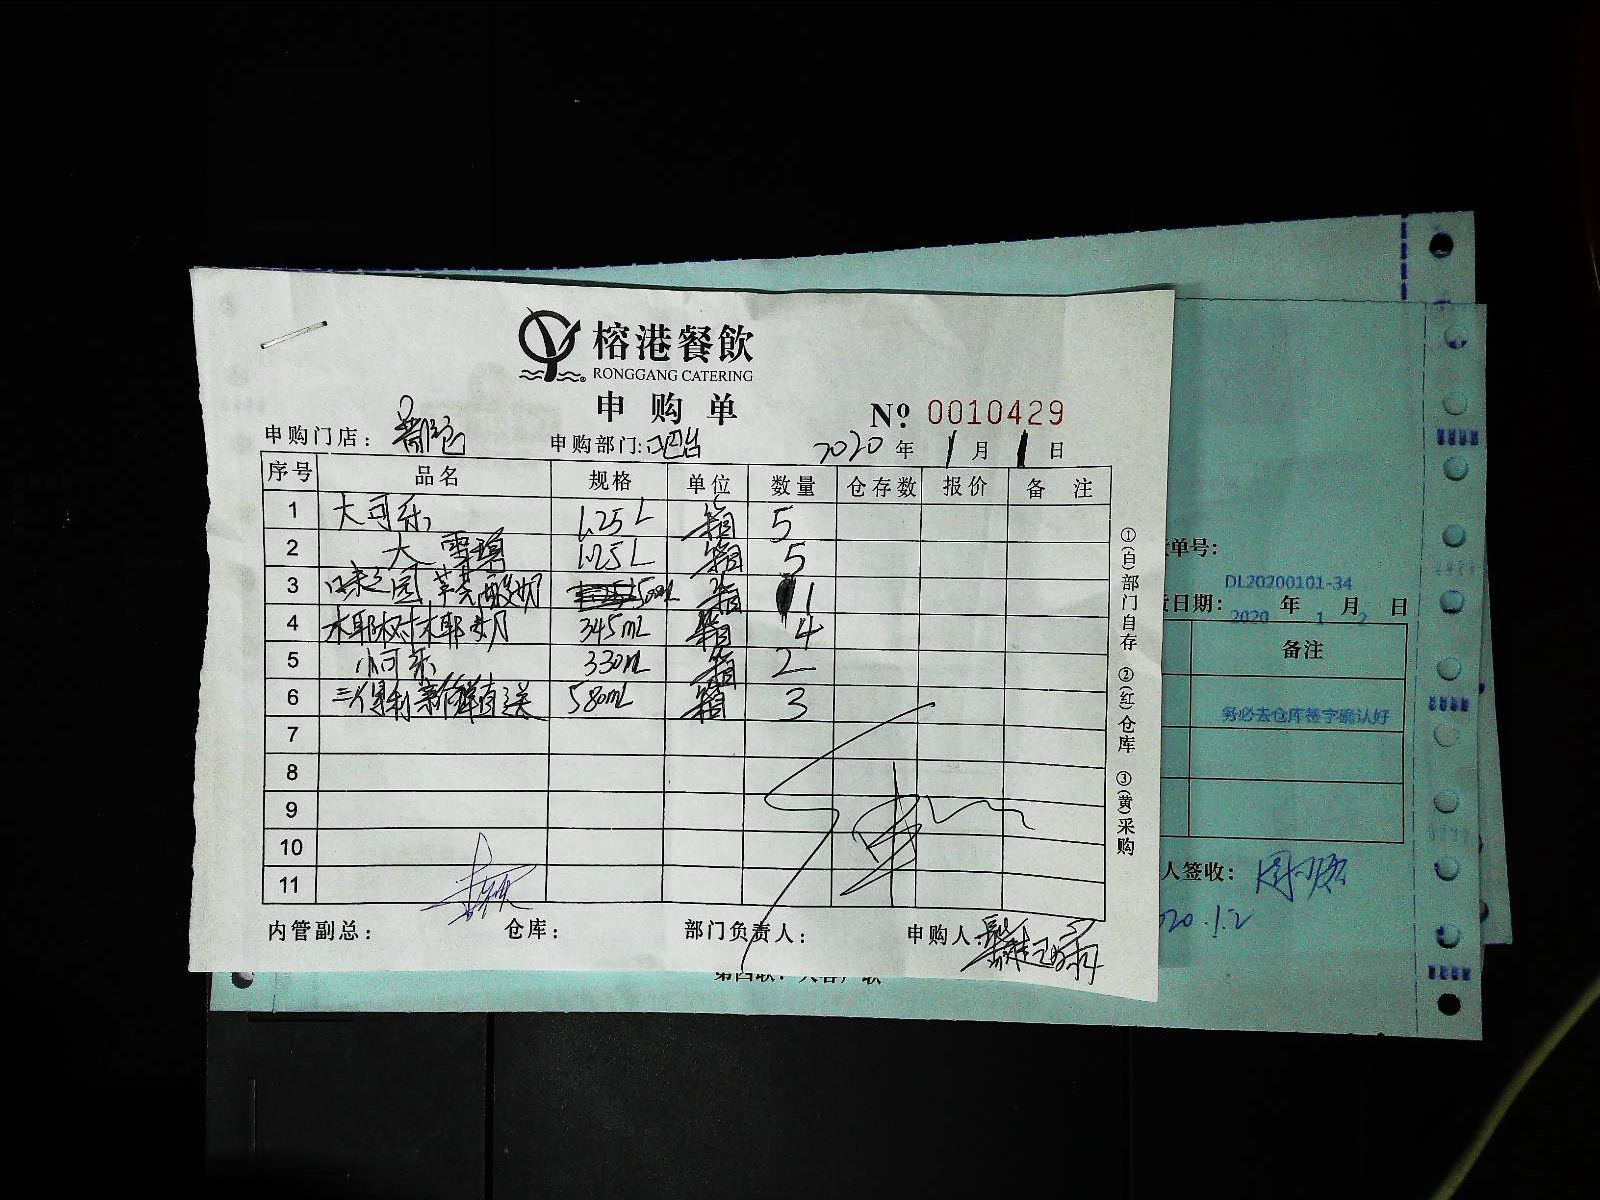 榕港餐飲
RONGGANG CATERING
申购单
№ 0010429
申购门店： 申购部门: 吧台 2020 年 1 月 1 日
序号 品名 规格 单位 数量 仓存数 报价 备 注
1 大可乐 1.25L 箱 5
2 大雪碧 1.25L 箱 5
3 味之园 酸奶 500mL 箱 1
4 椰树椰奶 345mL 箱 4
5 小可乐 330mL 箱 2
6 三得利新鲜直送 580mL 箱 3
7
8
9
10
11
内管副总： 仓库： 部门负责人： 申购人:
①(自)部门自存 ②(红)仓库 ③(黄)采购
单号：
DL20200101-34
日期： 2020 年 1 月 2 日
备注
务必去仓库签字确认好
人签收：
20.1.2